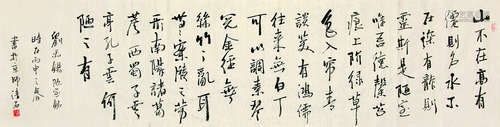 山不在高有
仙則名水不
在深有龍則
靈斯是陋室
唯吾德馨苔
痕上階綠草
色入帘青
談笑有鴻儒
往來無白丁
可以調素琴
閱金經無
絲竹之亂耳
無案牘之勞
形南陽諸葛
廬西蜀子雲
亭孔子云何
陋之有
劉禹錫陋室銘
時在丙申之春
書於京師